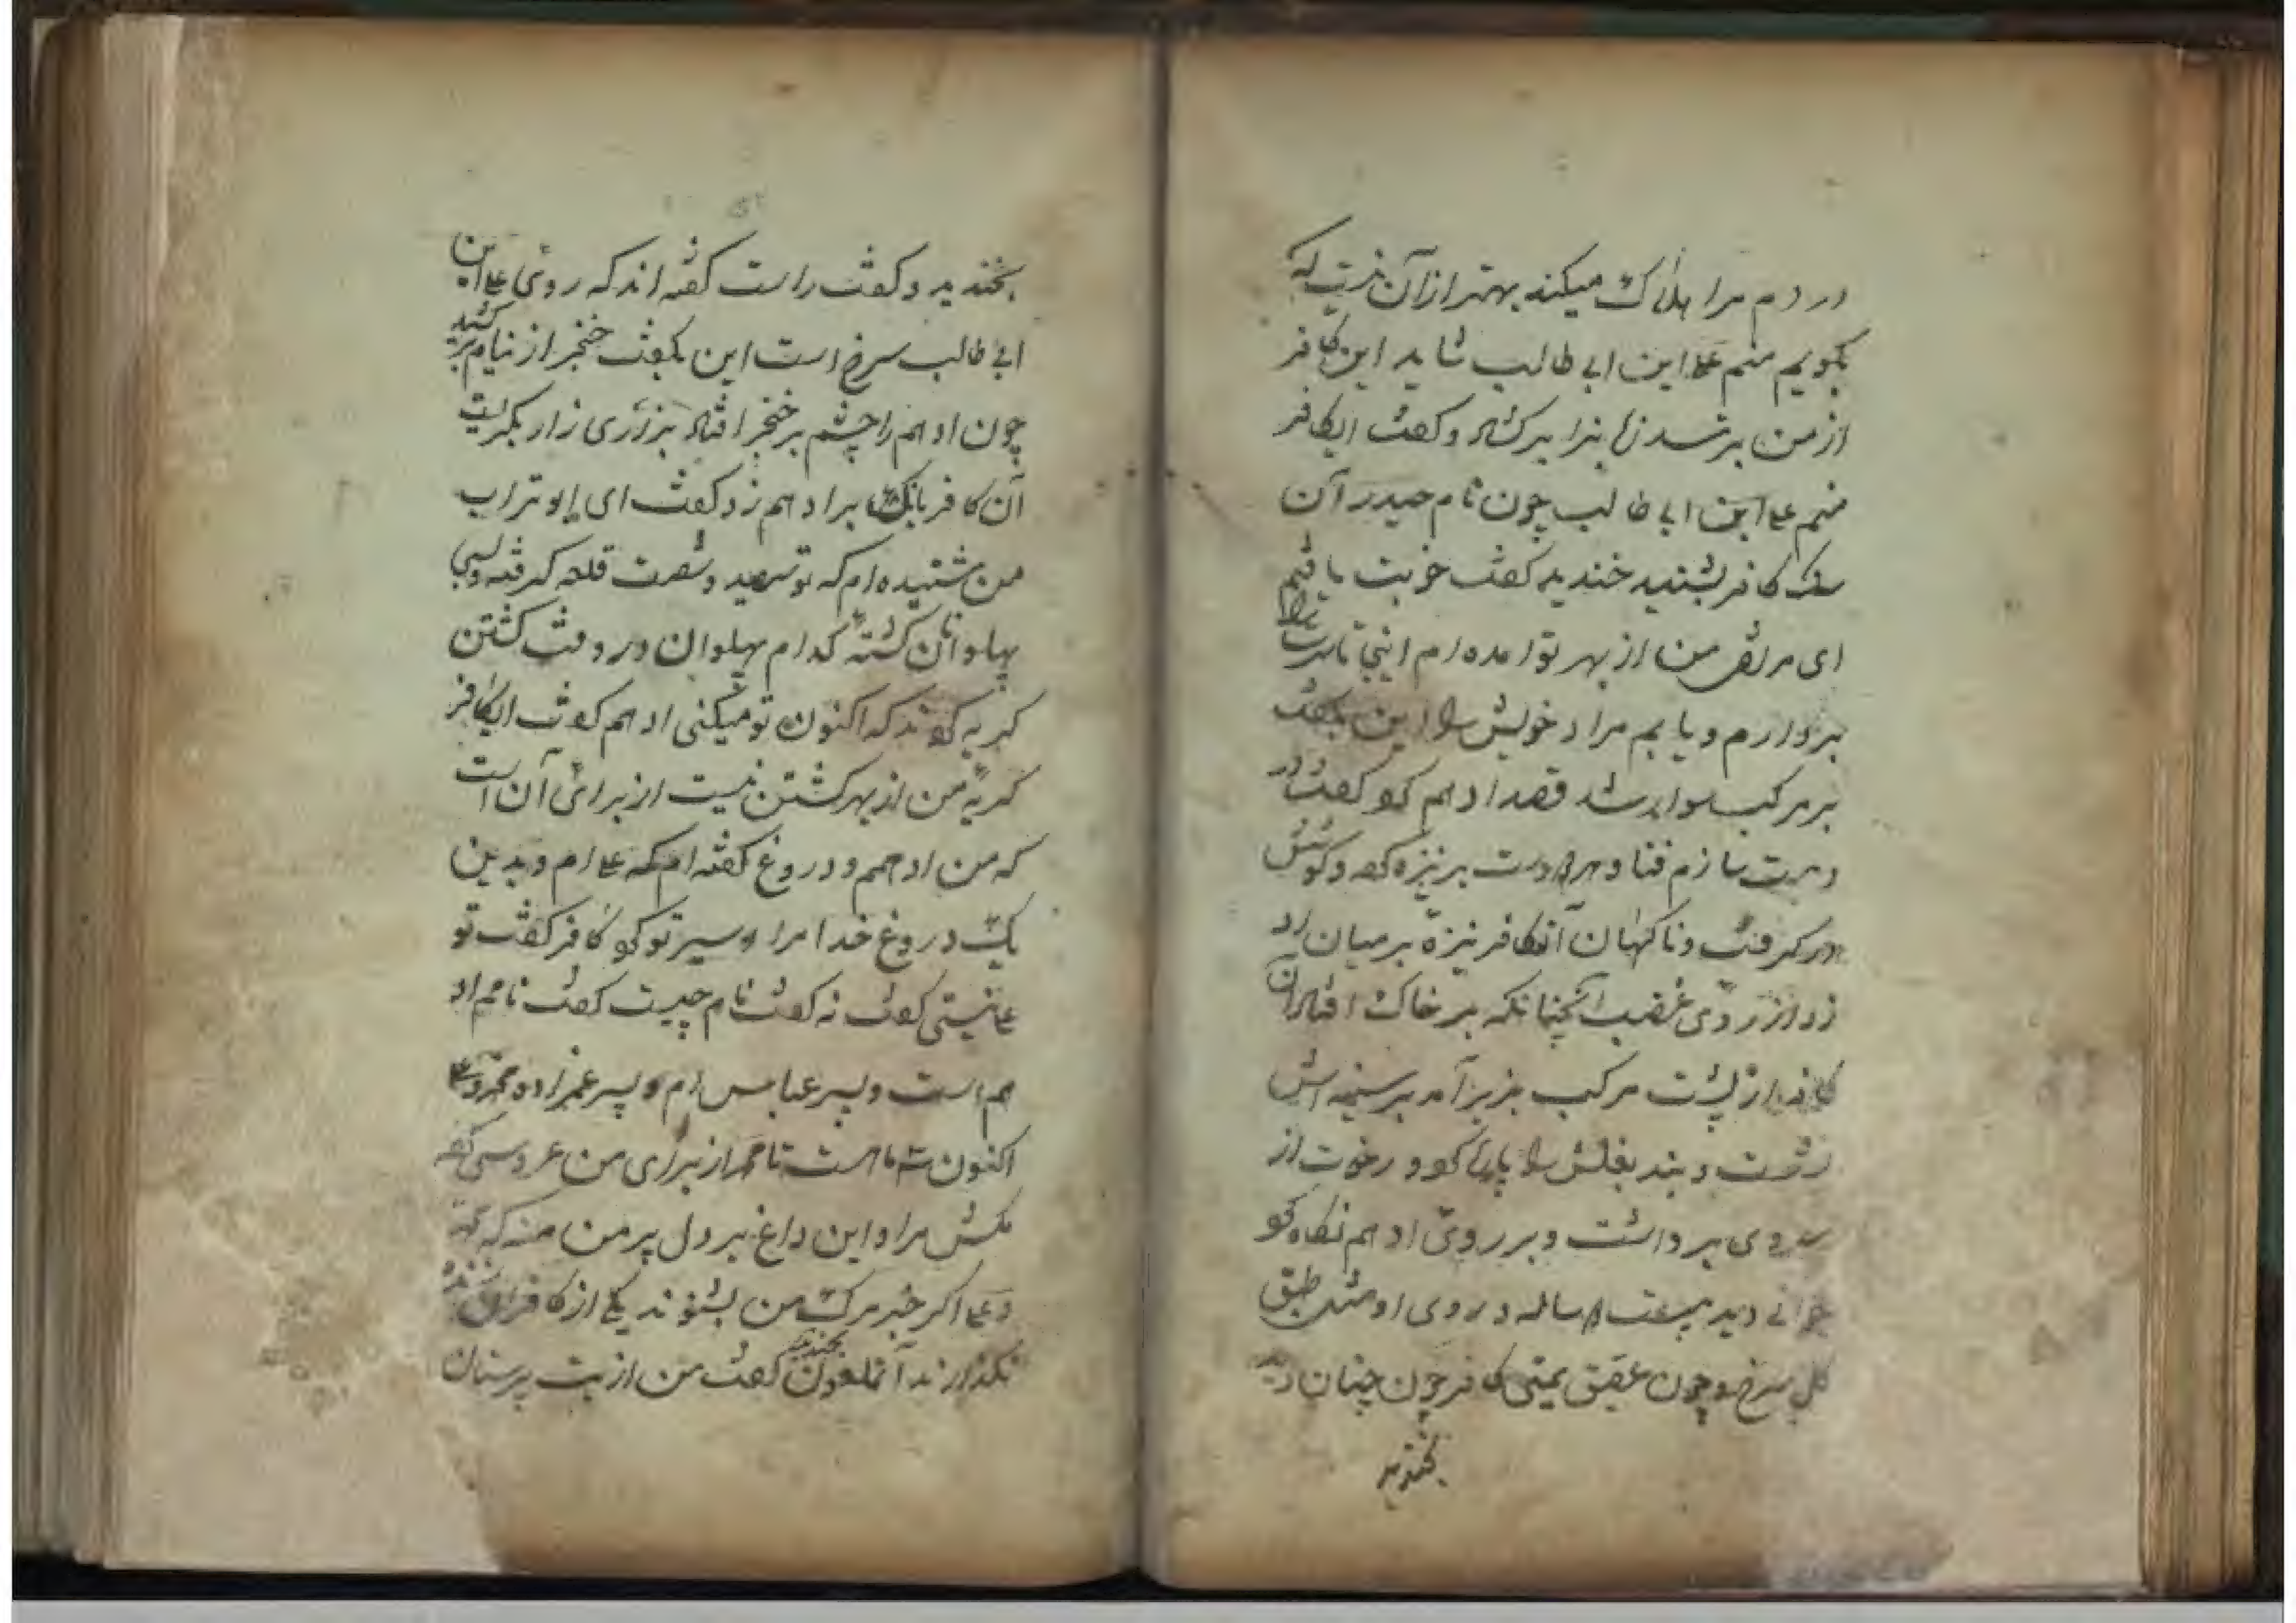 در دم مرا هلاک میکند بهتر ازان نیست که
بکویم منم علی ابن ابی طالب شاید این کافر
از من بترسد زبانرا برکشاد و کفت ایکافر
منم علی ابن ابی طالب چون نام حیدر آن
سک کافر بشنید خندید کفت خوبت یافتم
ای مرتضی من از بهر تو امده ام اینجا تا سرت را
بردارم و یابم مراد خویش را این بکفت
بر مرکب سوار شد قصد ادهم کرد کفت در
دمت سازم فنا و دست بر نیزه کرد و کوشش
در کرفت و ناکهان آنکافر نیزه بر میان اد
زد از روی غضب آنچنانکه بر خاک افتاد آن
کافر از پشت مرکب بزیر آمد بر سینه اش
نشست و بند بغلش را پاره کرد و رخوت از
روی برداشت و بر روی ادهم نکاه کرد
جوانی دید بیست ساله و روی او مثل طبق
کل سرخ و چون عقیق یمنی کافر چون چنان دید
بخندید
بخندید و کفت راست کفته اند که روی علی ابن
ابی طالب سرخ است این بکفت خنجر از نیام بر کشید
چون ادهم را چشم بر خنجر افتاد بزاری زار بکریست
آن کافر بانک بر ادهم زد و کفت ای ابو تراب
من شنیده ام که تو سیصد و شصت قلعه کرفته و بسی
پهلوانان کشته کدام پهلوان در وقت کشتن
کریه کردند که اکنون تو میکنی ادهم کفت ایکافر
کریه من از بهر کشتن نیست از برای آن است
که من ادهمم و دروغ کفته ام که علی ام و بدین
یک دروغ خدا مرا اسیر تو کرد کافر کفت تو
علی نیستی کفت نه کفت نام چیست کفت نامم اد
هم است و پسر عباس ام و پسر عمزاده محمد و علی
اکنون شش ماهست تا محمد از برای من عروسی کرده
مکش مرا و این داغ بر دل پدر من منه که محمد
و علی اکر خبر مرک من بشنوند یکی از کافران زنده
نکذارند آنملعون بخندید کفت من از بت پرستان